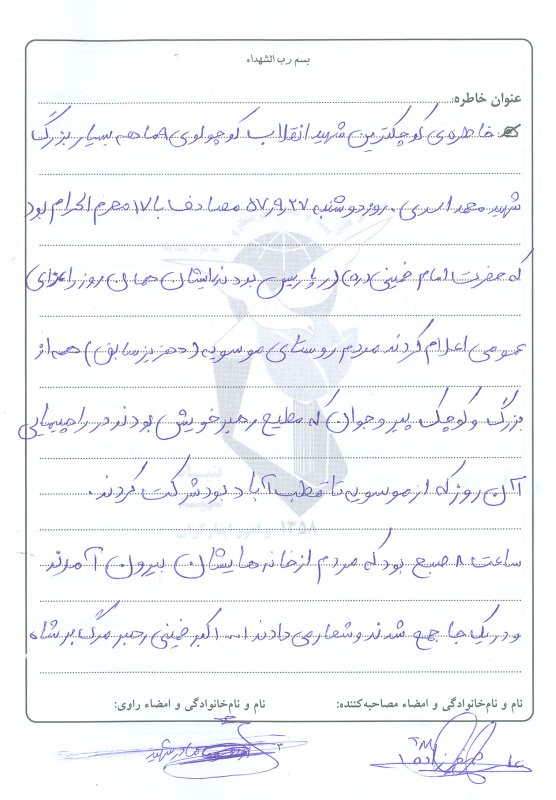 بسم رب الشهداء
عنوان خاطره:
خاطره‌ی کوچکترین شهید انقلاب کوچولوی ۹ ماهه بسیار بزرگ
شهید محمد اسدی. روز دوشنبه ۵۷/۹/۲۷ مصادف با ۱۷ محرم الحرام بود
که حضرت امام خمینی (ره) در پاریس بودند ایشان همان روز را عزای
عمومی اعلام کردند مردم روستای موسویه (دهزیر سابق) همه از
بزرگ و کوچک پیر و جوان که مطیع رهبر خویش بودند در راهپیمایی
آن روز که از موسویه تا قطب آباد بود شرکت کردند.
ساعت ۸ صبح بود که مردم از خانه هایشان بیرون آمدند
و در یک جا جمع شدند و شعار می دادند ا... اکبر خمینی رهبر مرگ بر شاه
نام و نام‌خانوادگی و امضاء مصاحبه‌کننده:
نام و نام‌خانوادگی و امضاء راوی:
مادر شهید
۱۳۵۸
و امور ایثارگران